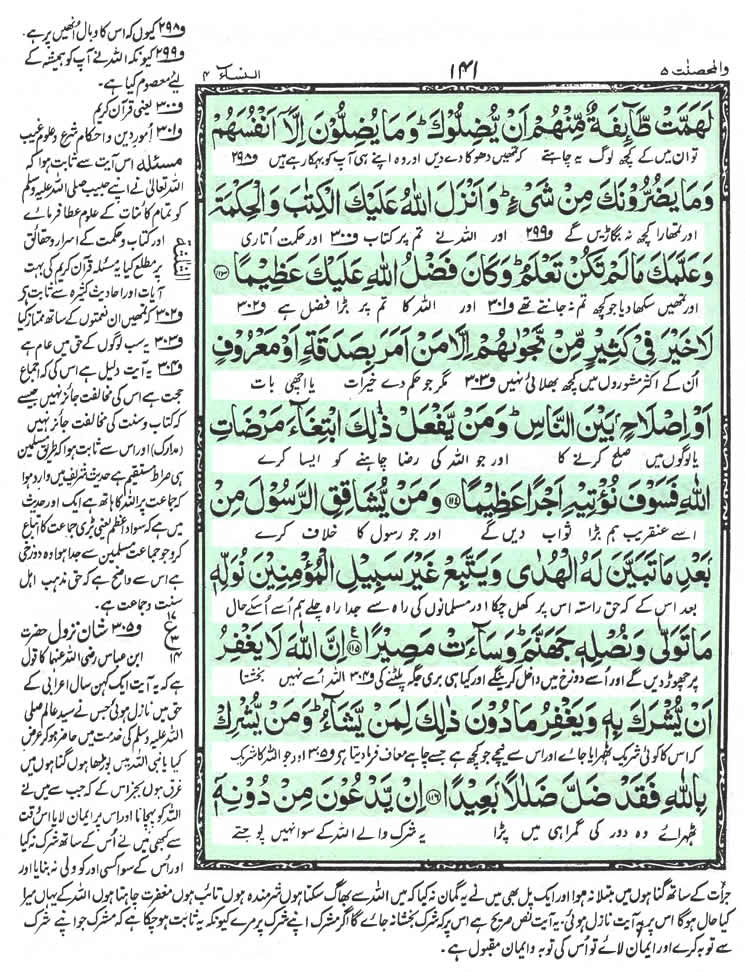 والمحصنٰت ۵
۱۴۱
النساء ۴
لَهَمَّتْ طَّآىِٕفَةٌ مِّنْهُمْ اَنْ یُّضِلُّوْكَؕ وَمَا یُضِلُّوْنَ اِلَّاۤ اَنْفُسَهُمْ
تو ان میں کے کچھ لوگ یہ چاہتے کہ تمھیں دھوکا دے دیں اور وہ اپنے ہی آپ کو بہکا رہے ہیں و۲۹۸
وَمَا یَضُرُّوْنَكَ مِنْ شَیْءٍؕ وَاَنْزَلَ اللّٰهُ عَلَیْكَ الْكِتٰبَ وَالْحِكْمَةَ
اور تمھارا کچھ نہ بگاڑیں گے و۲۹۹ اور اللہ نے تم پر کتاب و۳۰۰ اور حکمت اُتاری
وَعَلَّمَكَ مَا لَمْ تَكُنْ تَعْلَمُؕ وَكَانَ فَضْلُ اللّٰهِ عَلَیْكَ عَظِیْمًا ۝۱۱۳
اور تمھیں سکھا دیا جو کچھ تم نہ جانتے تھے و۳۰۱ اور اللہ کا تم پر بڑا فضل ہے و۳۰۲
لَا خَیْرَ فِیْ كَثِیْرٍ مِّنْ نَّجْوٰىهُمْ اِلَّا مَنْ اَمَرَ بِصَدَقَةٍ اَوْ مَعْرُوْفٍ
اُن کے اکثر مشوروں میں کچھ بھلائی نہیں و۳۰۳ مگر جو حکم دے خیرات یا اچھی بات
اَوْ اِصْلَاحٍۭ بَیْنَ النَّاسِؕ وَمَنْ یَّفْعَلْ ذٰلِكَ ابْتِغَآءَ مَرْضَاتِ
یا لوگوں میں صلح کرنے کا اور جو اللہ کی رضا چاہنے کو ایسا کرے
اللّٰهِ فَسَوْفَ نُؤْتِیْهِ اَجْرًا عَظِیْمًا ۝۱۱۴ وَمَنْ یُّشَاقِقِ الرَّسُوْلَ مِنْۢ
اسے عنقریب ہم بڑا ثواب دیں گے اور جو رسول کا خلاف کرے
بَعْدِ مَا تَبَیَّنَ لَهُ الْهُدٰى وَیَتَّبِعْ غَیْرَ سَبِیْلِ الْمُؤْمِنِیْنَ نُوَلِّهٖ
بعد اس کے کہ حق راستہ اس پر کھل چکا اور مسلمانوں کی راہ سے جدا راہ چلے ہم اُسے اُسکے حال
مَا تَوَلّٰى وَنُصْلِهٖ جَهَنَّمَؕ وَسَآءَتْ مَصِیْرًا ۝۱۱۵ اِنَّ اللّٰهَ لَا یَغْفِرُ
پر چھوڑ دیں گے اور اُسے دوزخ میں داخل کرینگے اور کیا ہی بری جگہ پلٹنے کی و۳۰۴ اللہ اُسے نہیں بخشتا
اَنْ یُّشْرَكَ بِهٖ وَیَغْفِرُ مَا دُوْنَ ذٰلِكَ لِمَنْ یَّشَآءُؕ وَمَنْ یُّشْرِكْ
کہ اس کا کوئی شریک ٹھہرایا جائے اور اس سے نیچے جو کچھ ہے جسے چاہے معاف فرما دیتا ہے و۳۰۵ اور جو اللہ کا شریک
بِاللّٰهِ فَقَدْ ضَلَّ ضَلٰلًۢا بَعِیْدًا ۝۱۱۶ اِنْ یَّدْعُوْنَ مِنْ دُوْنِهٖۤ
ٹھہرائے وہ دور کی گمراہی میں پڑا یہ شرک والے اللہ کے سوا نہیں پوجتے
و۲۹۸ کیوں کہ اس کا وبال اُنھیں پر ہے۔
و۲۹۹ کیونکہ اللہ نے آپ کو ہمیشہ کے
لئے معصوم کیا ہے۔
و۳۰۰ یعنی قرآن کریم
و۳۰۱ اُمور دین و احکام شرع و علوم غیب
مسئلہ اس آیت سے ثابت ہوا کہ
اللہ تعالیٰ نے اپنے حبیب صلی اللہ علیہ وسلم
کو تمام کائنات کے علوم عطا فرمائے
اور کتاب و حکمت کے اسرار و حقائق
پر مطلع کیا یہ مسئلہ قرآن کریم کی بہت
آیات اور احادیث کثیرہ سے ثابت ہے
و۳۰۲ کہ تمھیں ان نعمتوں کے ساتھ ممتاز کیا
و۳۰۳ یہ سب لوگوں کے حق میں عام ہے
و۳۰۴ یہ آیت دلیل ہے اس کی کہ اجماع
حجت ہے اس کی مخالفت جائز نہیں جیسے
کہ کتاب و سنت کی مخالفت جائز نہیں
(مدارک) اور اس سے ثابت ہوا کہ طریق مسلمین
ہی صراط مستقیم ہے حدیث شریف میں وارد ہوا
کہ جماعت پر اللہ کا ہاتھ ہے ایک اور حدیث
میں ہے کہ سواد اعظم یعنی بڑی جماعت کا اتباع
کرو جو جماعت مسلمین سے جدا ہوا وہ دوزخی
ہے اس سے واضح ہے کہ حق مذہب اہل
سنت و جماعت ہے۔
الثلثة
۱۷
ع
۱۴
و۳۰۵ شان نزول حضرت
ابن عباس رضی اللہ عنہما کا قول
ہے کہ یہ آیت ایک کہن سال اعرابی کے
حق میں نازل ہوئی جس نے سید عالم صلی
اللہ علیہ وسلم کی خدمت میں حاضر ہو کر عرض
کیا یا نبی اللہ میں بوڑھا ہوں گناہوں میں
غرق ہوں بجز اس کے کہ جب سے میں نے
اللہ کو پہچانا اور اس پر ایمان لایا اس وقت
سے کبھی میں نے اُس کے ساتھ شرک نہ کیا
اور اُس کے سوا کسی اور کو ولی نہ بنایا اور
جرأت کے ساتھ گناہوں میں مبتلا نہ ہوا اور ایک پل بھی میں نے یہ گمان نہ کیا کہ میں اللہ سے بھاگ سکتا ہوں شرمندہ ہوں تائب ہوں مغفرت چاہتا ہوں اللہ کے یہاں میرا
کیا حال ہوگا اس پر یہ آیت نازل ہوئی۔ یہ آیت نص صریح ہے اس پر کہ شرک بخشا نہ جائے گا اگر مشرک اپنے شرک پر مرے کیونکہ یہ ثابت ہو چکا ہے کہ مشرک جو اپنے شرک
سے توبہ کرے اور ایمان لائے تو اُس کی توبہ و ایمان مقبول ہے۔